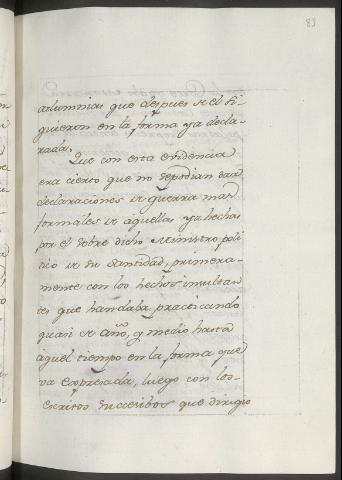 83
calumnias que despues se el si-
guieron en la forma ya decla-
rada.
Que con esta evidencia
era cierto que no se podian dar
declaraciones de guerra mas
formales de aquellas ya hechas
por el sobre dicho Ministro poli-
tico de su Santidad, primera-
mente con los hechos insultan-
tes que handaba practicando
quasi de año, y medio hasta
aquel tiempo en la forma que
va expresada, luego con los
escritos que dirigio